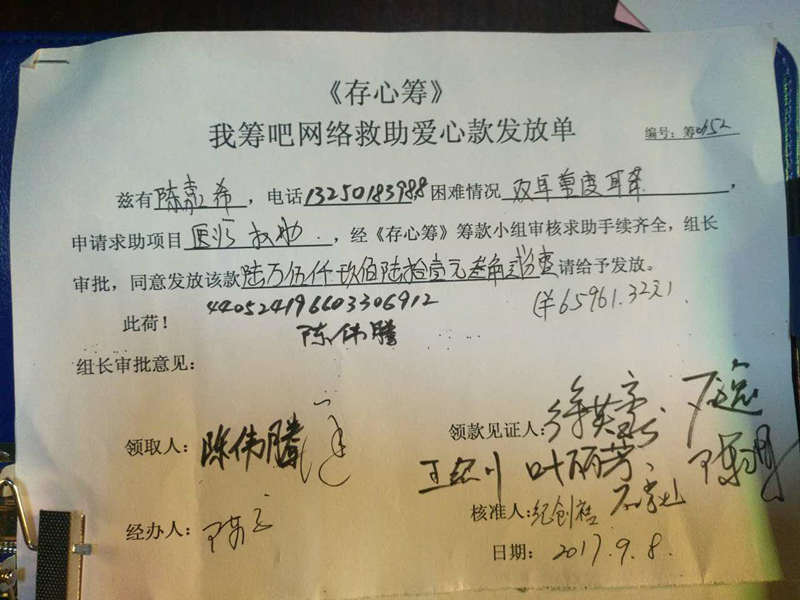 《存心筹》
我筹吧网络救助爱心款发放单
编号：筹0652
兹有陈嘉希，电话13250183988困难情况双耳重度耳聋，
申请求助项目医疗救助，经《存心筹》筹款小组审核求助手续齐全，组长
审批，同意发放该款陆万伍仟玖佰陆拾壹元叁角贰分整请给予发放。
440524196603306912 (¥65961.32元)
此荷！
陈伟腾
组长审批意见：
领取人：陈伟腾 领款见证人：徐英豪
叶丽芳
核准人：纪创裕
经办人：
日期：2017.9.8.